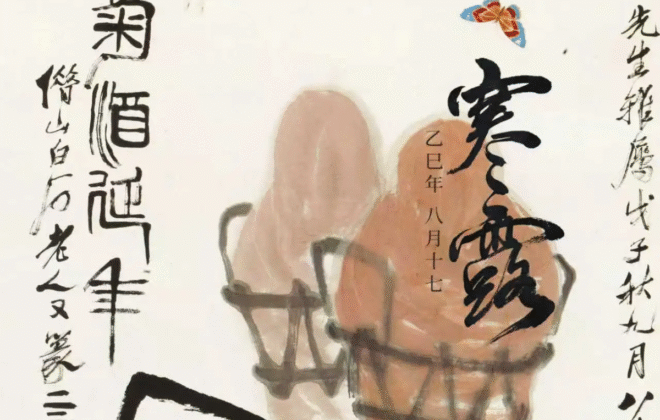 先生雅属戊子秋九月
寒露
乙巳年 八月十七
菊酒延年
借山白石老人又篆二